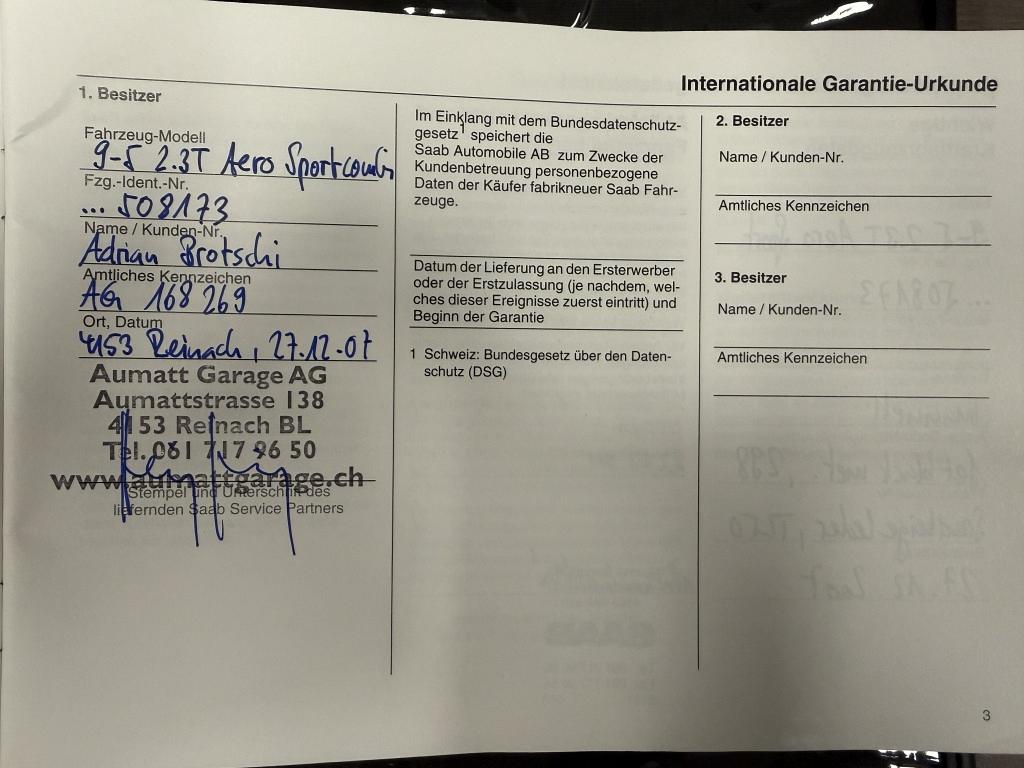 Internationale Garantie-Urkunde
1. Besitzer
Fahrzeug-Modell
9-5 2.3T Aero Sportcombi
Fzg.-Ident.-Nr.
... 508173
Name / Kunden-Nr.
Adrian Brotschi
Amtliches Kennzeichen
AG 168 269
Ort, Datum
4153 Reinach, 27.12.07
Aumatt Garage AG
Aumattstrasse 138
4153 Reinach BL
Tel. 061 717 96 50
www.aumattgarage.ch
Stempel und Unterschrift des
liefernden Saab Service Partners
Im Einklang mit dem Bundesdatenschutz-
gesetz1 speichert die
Saab Automobile AB zum Zwecke der
Kundenbetreuung personenbezogene
Daten der Käufer fabrikneuer Saab Fahr-
zeuge.
Datum der Lieferung an den Ersterwerber
oder der Erstzulassung (je nachdem, wel-
ches dieser Ereignisse zuerst eintritt) und
Beginn der Garantie
1 Schweiz: Bundesgesetz über den Daten-
schutz (DSG)
2. Besitzer
Name / Kunden-Nr.
Amtliches Kennzeichen
3. Besitzer
Name / Kunden-Nr.
Amtliches Kennzeichen
3